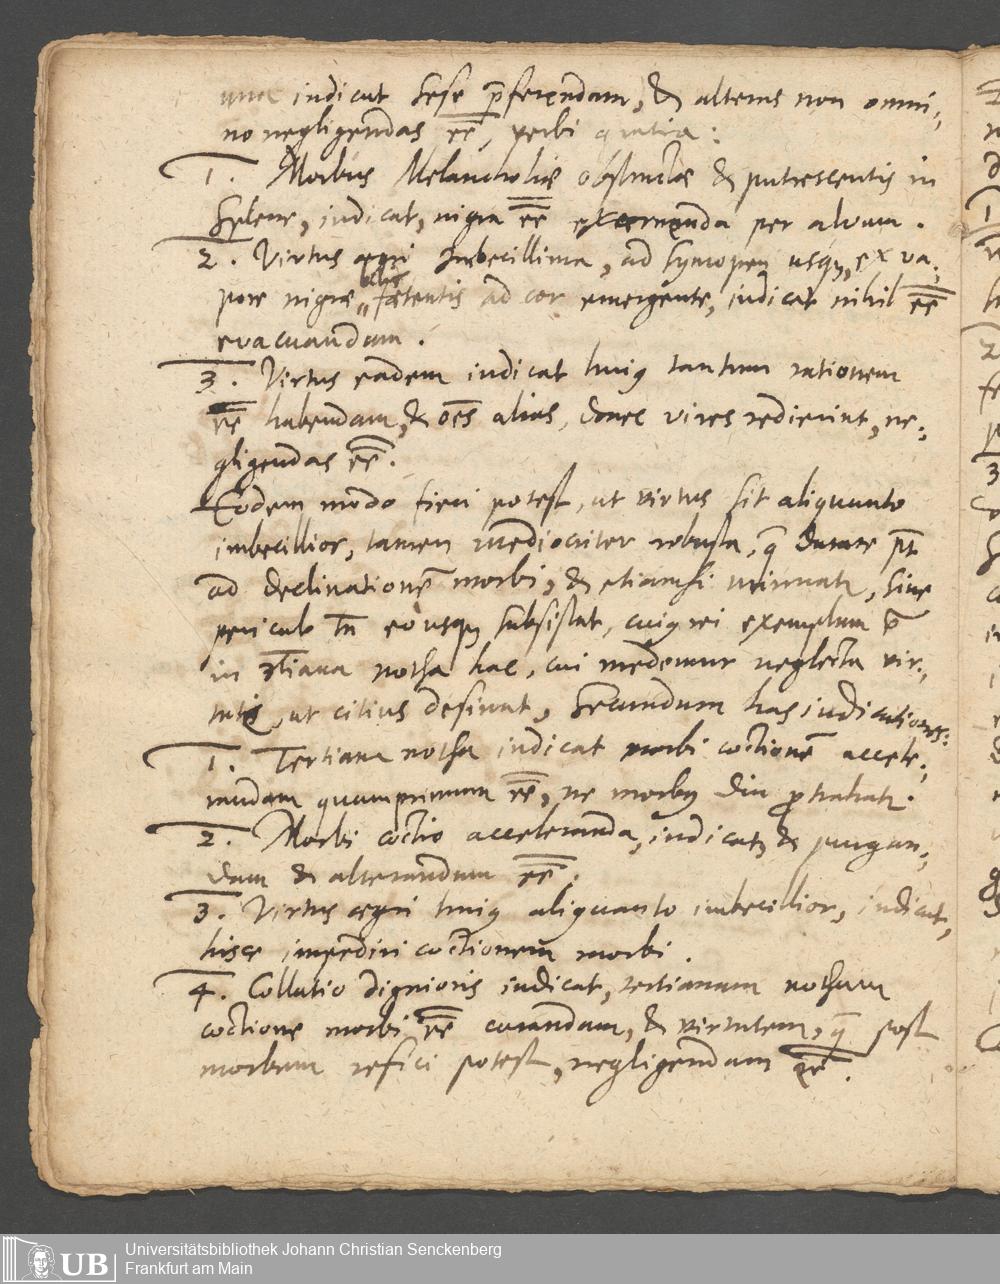 una indicat sese p̄ferendam, & alteras non omni,,
no negligendas eē, verbi gratia:
1. Morbus Melancholiæ obstructæ & putrescentis in
Splene, indicat, nigra eē excernenda per alvum.
2. Virtus ægri imbecillima, ad syncopen usq́, ex va,,
pore nigræ bilis fœtentis ad cor emergente, indicat nihil eē
evacuandum.
3. Virtus eadem indicat huiꝰ tantum rationem
eē habendam, & oēs alias, donec vires redierint, ne,,
gligendas eē.
Eodem modo fieri potest, ut virtus sit aliquanto
imbecillior, tamen mediocriter robusta, q̄ durare pt̄
ad declinationē morbi, & etiamsi minuatr, sine
periculo tn̄ eousq́ subsistat, cuiꝰ rei exemplum ē
in 3tiana notha hac, cui medemur neglecta vir,,
tute, ut citius desinat, Secundum has indicationes:
1. Tertiana notha indicat morbi coctionē accele,,
randam quamprimum eē, ne morbꝰ diu ptrahatr.
2. Morbi coctio acceleranda, indicat & purgan,,
dam & alterandum eē.
3. Virtus ægri huiꝰ aliquanto imbecillior, indicat,
hisce impediri coctionem morbi.
4. Collatio dignioris indicat, tertianam notham
coctione morbi eē curandam, & virtutem, q̄ post
morbum refici potest, negligendam eē.
UB
Universitätsbibliothek Johann Christian Senckenberg
Frankfurt am Main